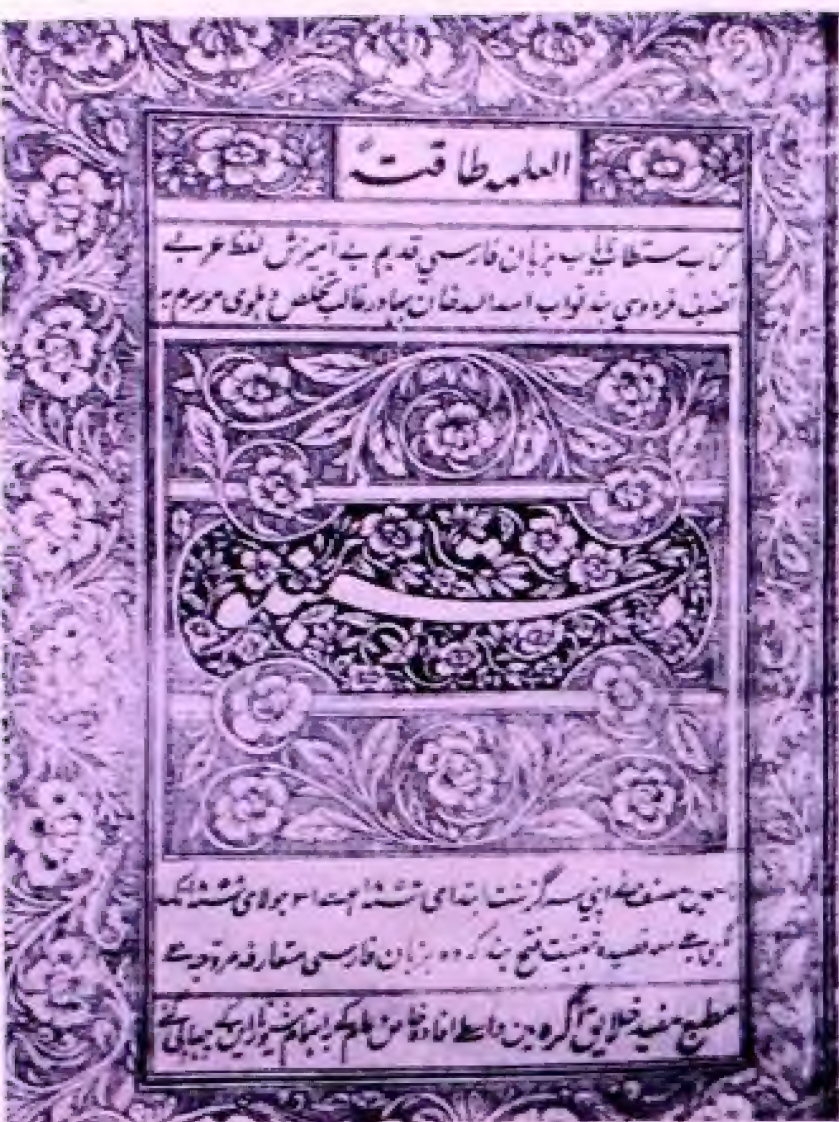 العلمہ طاقتہ
کتاب مستطاب بزبان فارسی قدیم بے آمیزش لفظ عربی
تصنیف فردوسی ہند نواب اسد اللہ خان بہادر غالب تخلص دہلوی موسوم بہ
دستنبو
مصنف نے اپنی سرگزشت ابتدای جولای تک
لکھی ہے معہ قصیدہ تہنیت فتح ہند کہ وہ بزبان فارسی متعارفہ مروجہ ہے
مطبع مفید خلایق آگرہ میں واسطے افادہ خاص و عام کے باہتمام شیونراین کے چھاپی گئی